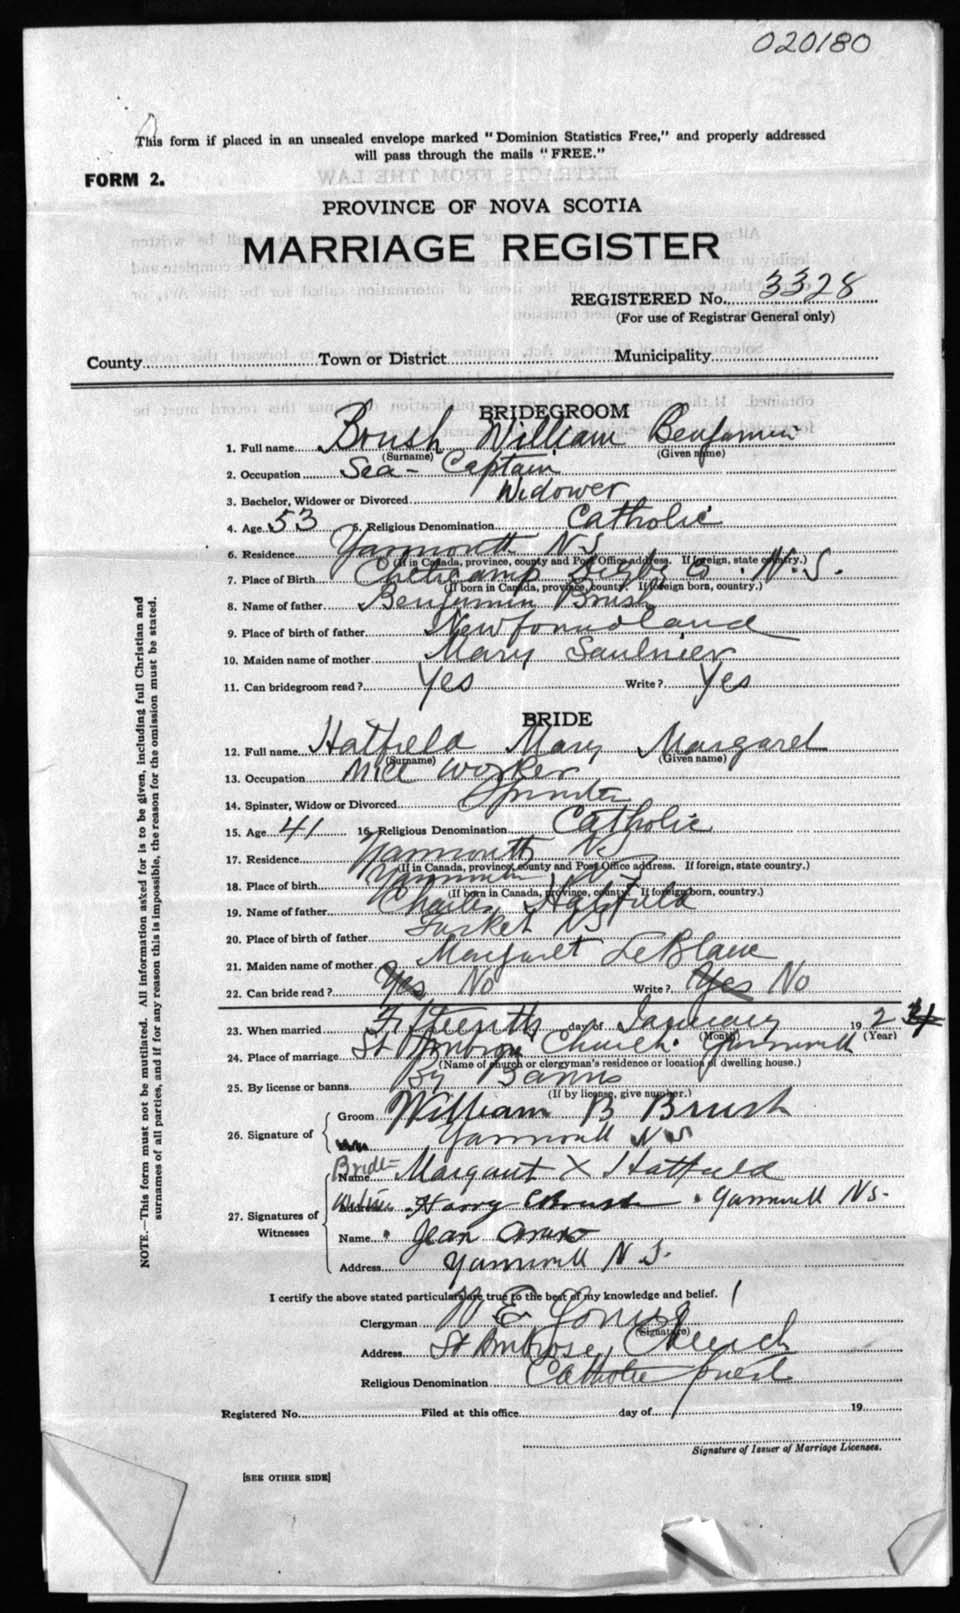 020180
This form if placed in an unsealed envelope marked "Dominion Statistics Free," and properly addressed
will pass through the mails "FREE."
FORM 2.
PROVINCE OF NOVA SCOTIA
MARRIAGE REGISTER
REGISTERED No. 3328
(For use of Registrar General only)
County Town or District Municipality
BRIDEGROOM
1. Full name Brush William Benjamin
(Surname) (Given name)
2. Occupation Sea-Captain
3. Bachelor, Widower or Divorced Widower
4. Age 53 5. Religious Denomination Catholic
6. Residence Yarmouth N S
(If in Canada, province, county and Post Office address. If foreign, state country.)
7. Place of Birth Digby Co. N.S.
(If born in Canada, province, county. If foreign born, country.)
8. Name of father Benjamin Brush
9. Place of birth of father Newfoundland
10. Maiden name of mother Mary Saulnier
11. Can bridegroom read? Yes Write? Yes
BRIDE
12. Full name Hatfield Mary Margaret
(Surname) (Given name)
13. Occupation Mill worker
14. Spinster, Widow or Divorced Spinster
15. Age 41 16. Religious Denomination Catholic
17. Residence Yarmouth N S
(If in Canada, province, county and Post Office address. If foreign, state country.)
18. Place of birth Yarmouth N S
(If born in Canada, province, county. If foreign born, country.)
19. Name of father Charles Hatfield
20. Place of birth of father Tusket N S
21. Maiden name of mother Margaret LeBlanc
22. Can bride read? Yes No Write? Yes No
23. When married Fifteenth day of January 192
(Month) (Year)
24. Place of marriage St Ambrose Church Yarmouth
(Name of church or clergyman's residence or location of dwelling house.)
25. By license or banns By Banns
(If by license, give number.)
26. Signature of Groom William B Brush
Yarmouth N S
Bride Name Margaret X Hatfield
27. Signatures of Witnesses Harry Brush Yarmouth N S.
Name Jean
Address Yarmouth N S.
I certify the above stated particulars are true to the best of my knowledge and belief.
Clergyman W E
(Signature)
Address St Ambrose Church
Religious Denomination Catholic priest
Registered No. Filed at this office day of 19
Signature of Issuer of Marriage Licenses.
[SEE OTHER SIDE]
NOTE.—This form must not be mutilated. All information asked for is to be given, including full Christian and
surnames of all parties, and if for any reason this is impossible, the reason for the omission must be stated.